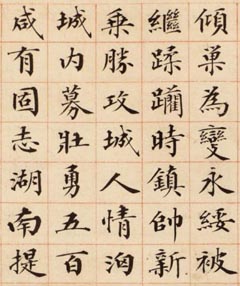 傾巢為變永綏被
繼蹂躪時鎮帥新
乘勝攻城人情洶
城內募壯勇五百
咸有固志湖南提